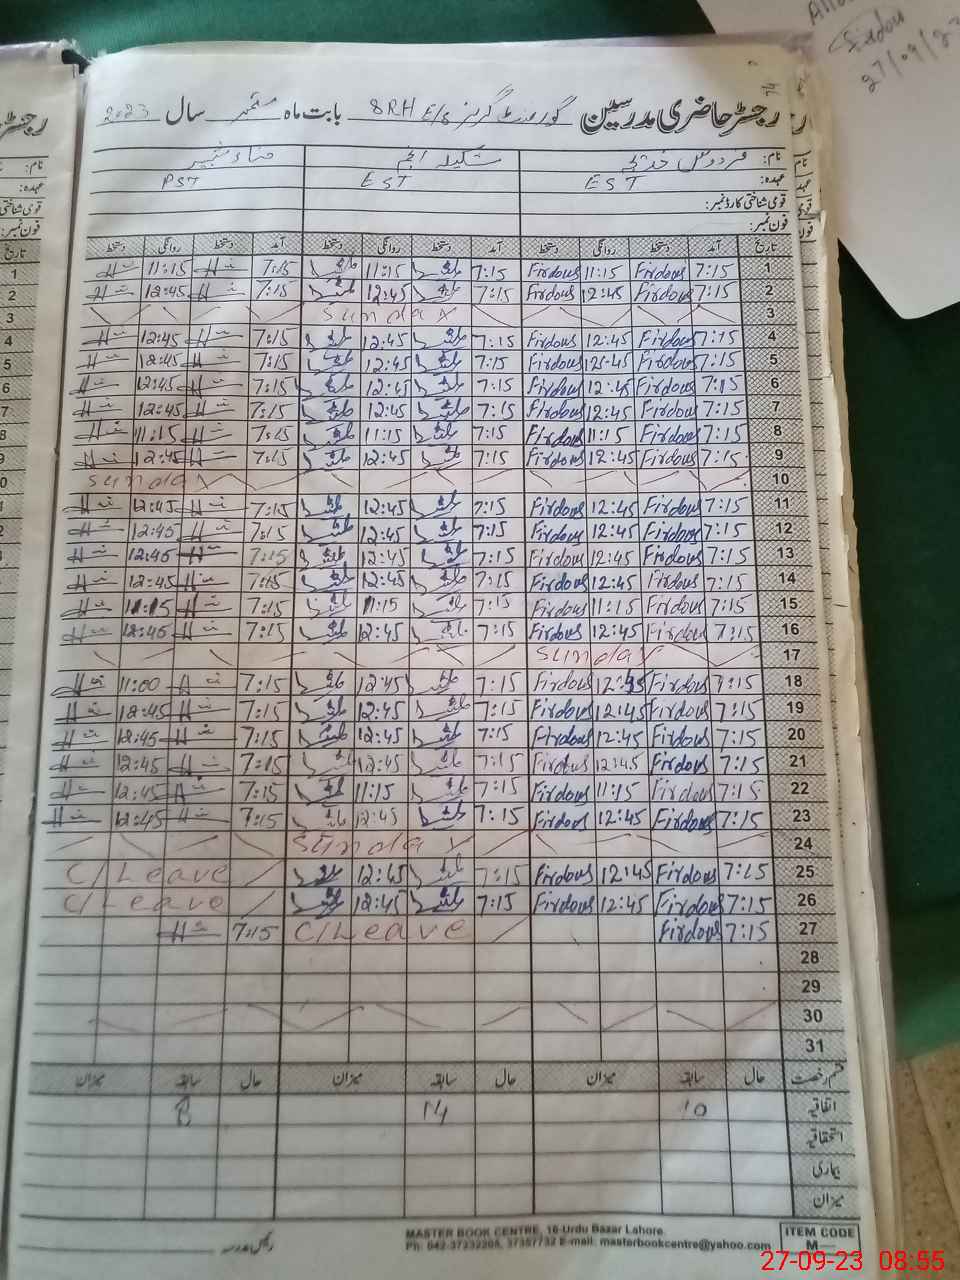 رجسٹر حاضری مدرسین گورنمنٹ گرلز E/S 8RH بابت ماہ ستمبر سال 2023
نام: فردوس خدیجہ شکیلہ انجم
عہدہ: EST EST PST
قومی شناختی کارڈ نمبر:
فون نمبر:
تاریخ آمد دستخط روانگی دستخط آمد دستخط روانگی دستخط آمد دستخط روانگی دستخط
1 7:15 Firdous 11:15 Firdous 7:15 11:15 7:15 11:15
2 7:15 Firdous 12:45 Firdous 7:15 12:45 7:15 12:45
3 Sunday
4 7:15 Firdous 12:45 Firdous 7:15 12:45 7:15 12:45
5 7:15 Firdous 12:45 Firdous 7:15 12:45 7:15 12:45
6 7:15 Firdous 12:45 Firdous 7:15 12:45 7:15 12:45
7 7:15 Firdous 12:45 Firdous 7:15 12:45 7:15 12:45
8 7:15 Firdous 11:15 Firdous 7:15 11:15 7:15 11:15
9 7:15 Firdous 12:45 Firdous 7:15 12:45 7:15 12:45
10 Sunday
11 7:15 Firdous 12:45 Firdous 7:15 12:45 7:15 12:45
12 7:15 Firdous 12:45 Firdous 7:15 12:45 7:15 12:45
13 7:15 Firdous 12:45 Firdous 7:15 12:45 7:15 12:45
14 7:15 Firdous 12:45 Firdous 7:15 12:45 7:15 12:45
15 7:15 Firdous 11:15 Firdous 7:15 11:15 7:15 11:15
16 7:15 Firdous 12:45 Firdous 7:15 12:45 7:15 12:45
17 Sunday
18 7:15 Firdous 12:45 Firdous 7:15 12:45 7:15 11:00
19 7:15 Firdous 12:45 Firdous 7:15 12:45 7:15 12:45
20 7:15 Firdous 12:45 Firdous 7:15 12:45 7:15 12:45
21 7:15 Firdous 12:45 Firdous 7:15 12:45 7:15 12:45
22 7:15 Firdous 11:15 Firdous 7:15 11:15 7:15 12:45
23 7:15 Firdous 12:45 Firdous 7:15 12:45 7:15 12:45
24 Sunday
25 7:15 Firdous 12:45 Firdous 7:15 12:45 C/Leave
26 7:15 Firdous 12:45 Firdous 7:15 12:45 C/Leave
27 7:15 Firdous C/Leave 7:15
28
29
30
31
قسم رخصت حال سابقہ میزان حال سابقہ میزان حال سابقہ میزان
اتفاقیہ 10 14
استحقاقیہ
بیماری
میزان
رئیس مدرسہ
MASTER BOOK CENTRE, 16-Urdu Bazar Lahore.
Ph: 042-37232205, 37357732 E-mail: masterbookcentre@yahoo.com
ITEM CODE
M—
27-09-23 08:55
Firdou
27/09/23